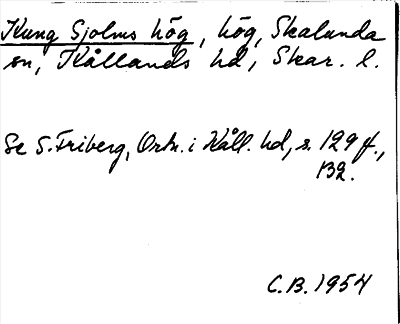 Kung Sjolms hög, hög, Skalunda
sn, Kållands hd, Skar. l.
Se S. Friberg, Ortn. i Kåll. hd, s. 129 f.,
132.
C.B. 1954